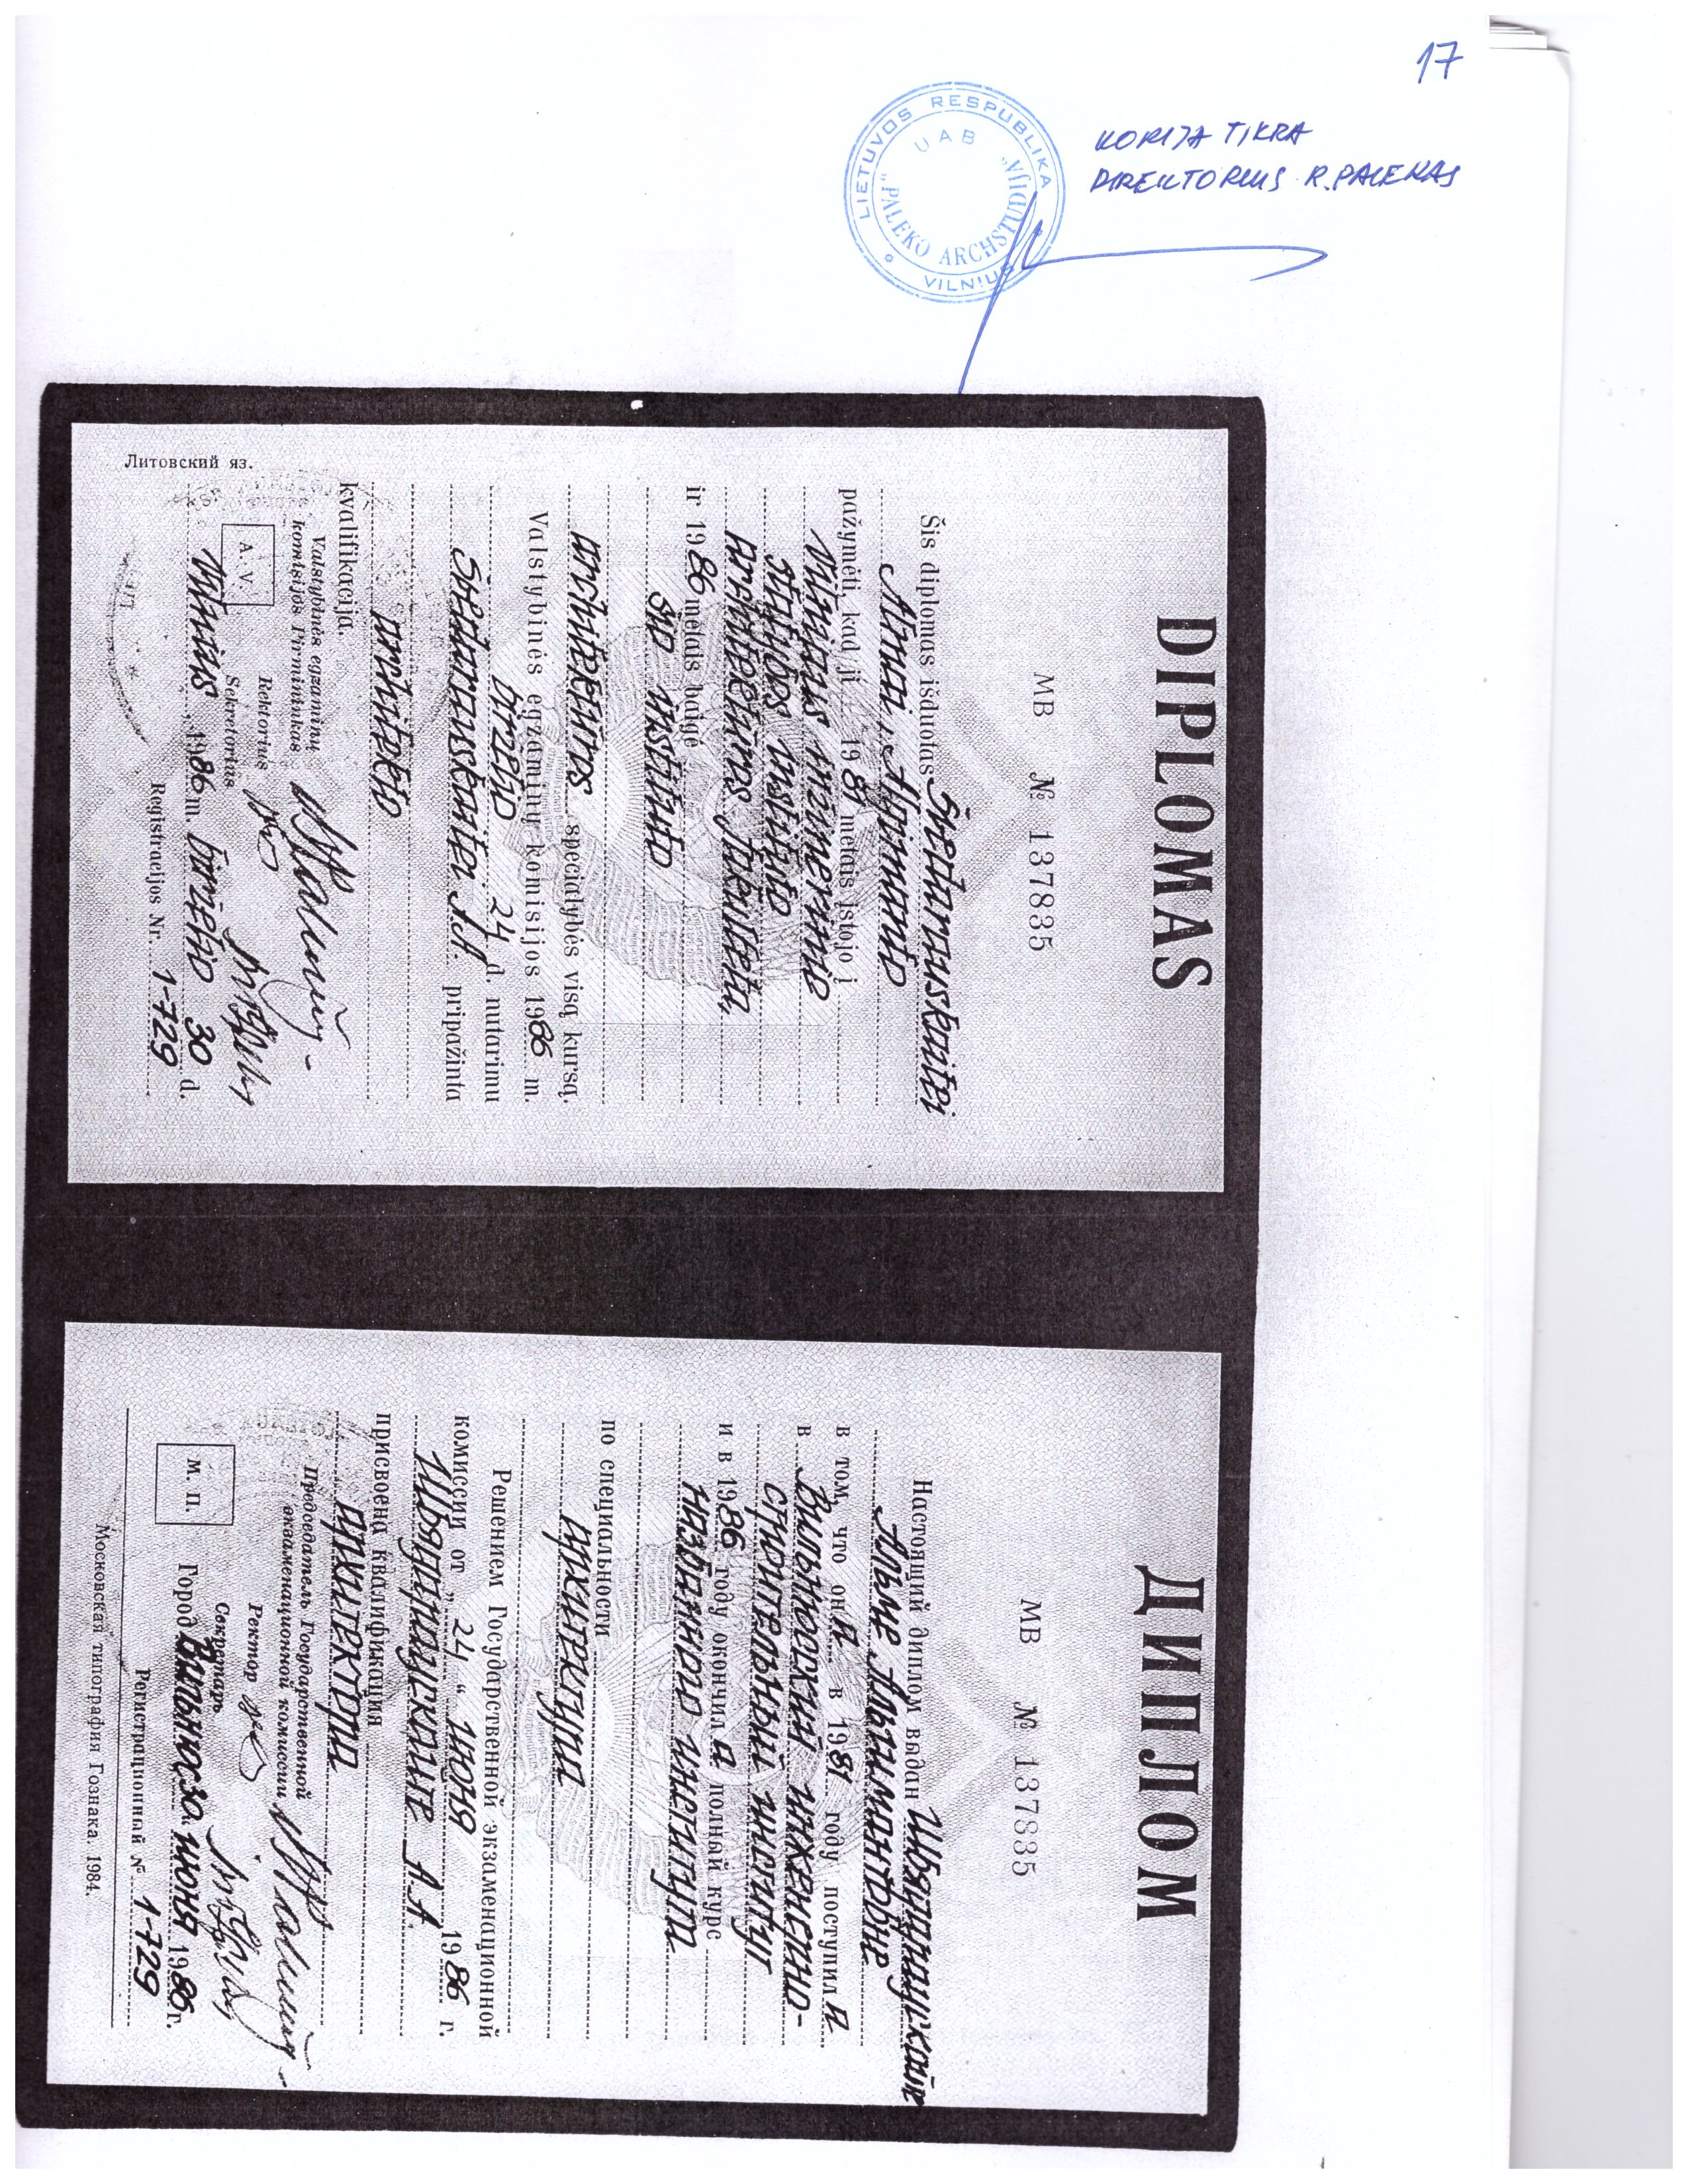 17
KOPIJA TIKRA
DIREKTORIUS R. PALEKAS
LIETUVOS RESPUBLIKA
UAB
„PALEKO ARCHSTUDIJA“
VILNIUS
DIPLOMAS
MB № 137835
Šis diplomas išduotas
Almai, Algimanto
pažymėti, kad ji 1981 metais įstojo į
Vilniaus inžinerinio
statybos instituto
architektūros fakultetą
ir 1986 metais baigė
šio instituto
architektūros specialybės visą kursą.
Valstybinės egzaminų komisijos 1986 m.
birželio 24 d. nutarimu
A.A. pripažinta
architekto
kvalifikacija.
Valstybinės egzaminų
komisijos Pirmininkas
Rektorius
Sekretorius
A. V.
Vilnius, 1986 m. birželio 30 d.
Registracijos Nr. 1-729
Литовский яз.
ДИПЛОМ
МВ № 137835
Настоящий диплом выдан
Альме Альгимантовне
в том, что она в 1981 году поступила
в Вильнюсский инженерно-
строительный институт
и в 1986 году окончила полный курс
названного института
по специальности
архитектура
Решением Государственной экзаменационной
комиссии от „24“ июня 1986 г.
А.А.
присвоена квалификация
архитектора
Председатель Государственной
экзаменационной комиссии
Ректор
Секретарь
М. П.
Город Вильнюс 30 июня 1986 г.
Регистрационный № 1-729
Московская типография Гознака. 1984.